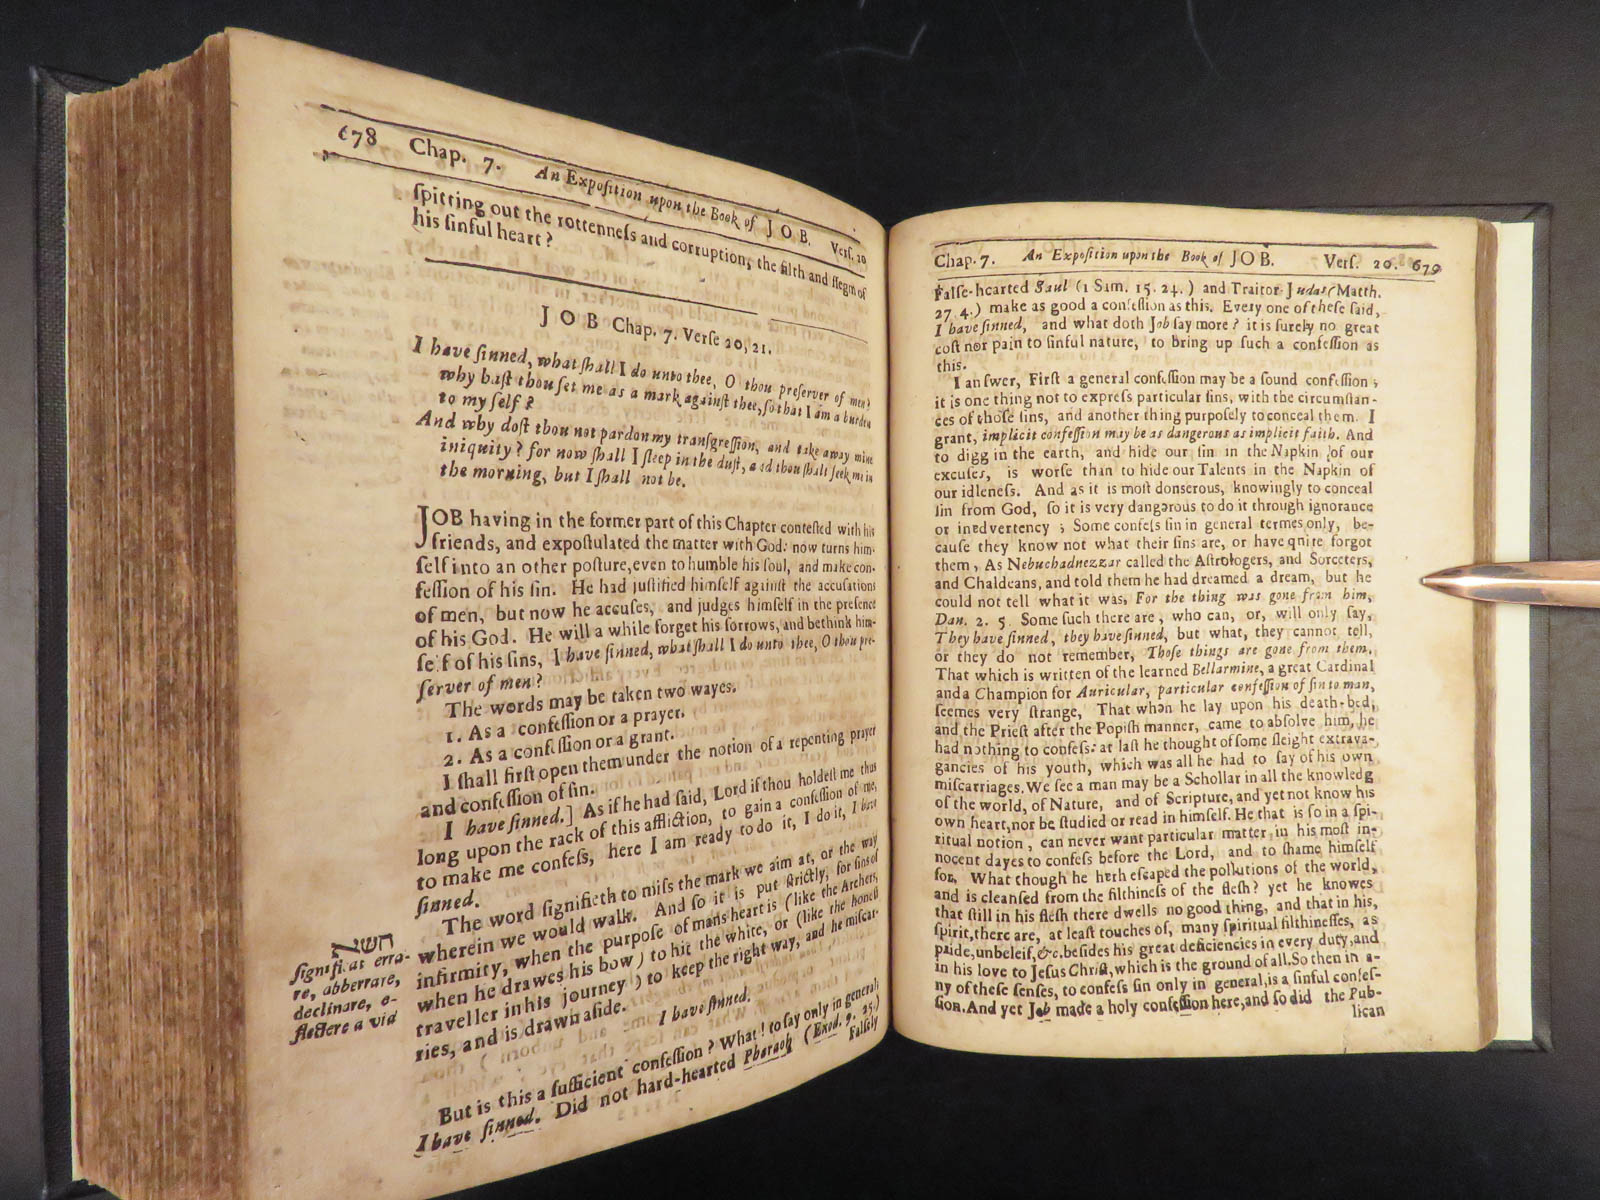 678 Chap. 7. An Expoſition upon the Book of JOB. Verſ. 20
ſpitting out the rottenneſs and corruption, the filth and flegm of
his ſinful heart?
JOB Chap. 7. Verſe 20, 21.
I have ſinned, what ſhall I do unto thee, O thou preſerver of men?
why haſt thou ſet me as a mark againſt thee, ſo that I am a burden
to my ſelf?
And why doſt thou not pardon my tranſgreſſion, and take away mine
iniquity? for now ſhall I ſleep in the duſt, and thou ſhalt ſeek me in
the morning, but I ſhall not be.
JOB having in the former part of this Chapter conteſted with his
friends, and expoſtulated the matter with God: now turns him-
ſelf into an other poſture, even to humble his ſoul, and make con-
feſſion of his ſin. He had juſtified himſelf againſt the accuſations
of men, but now he accuſes, and judges himſelf in the preſence
of his God. He will a while forget his ſorrows, and bethink him-
ſelf of his ſins, I have ſinned, what ſhall I do unto thee, O thou pre-
ſerver of men?
The words may be taken two wayes.
1. As a confeſſion or a prayer.
2. As a confeſſion or a grant.
I ſhall firſt open them under the notion of a repenting prayer
and confeſſion of ſin.
I have ſinned.] As if he had ſaid, Lord if thou holdeſt me thus
long upon the rack of this affliction, to gain a confeſſion of me,
to make me confeſs, here I am ready to do it, I do it, I have
ſinned.
The word ſignifieth to miſs the mark we aim at, or the way
wherein we would walk. And ſo it is put ſtrictly, for ſins of
infirmity, when the purpoſe of mans heart is (like the Archers,
when he drawes his bow) to hit the white, or (like the honeſt
traveller in his journey) to keep the right way, and he miſcar-
ries, and is drawn aſide.
חטא
ſignificat erra-
re, abberrare,
declinare, e-
flectere a via
I have ſinned.
But is this a ſufficient confeſſion? What! to ſay only in general,
I have ſinned. Did not hard-hearted Pharaoh (Exod. 9. 25.)
Falſely
Chap. 7. An Expoſition upon the Book of JOB. Verſ. 20. 679
Falſe-hearted Saul (1 Sam. 15. 24.) and Traitor Judas (Matth.
27. 4.) make as good a confeſſion as this. Every one of theſe ſaid,
I have ſinned, and what doth Job ſay more? it is ſurely no great
coſt nor pain to ſinful nature, to bring up ſuch a confeſſion as
this.
I anſwer, Firſt a general confeſſion may be a ſound confeſſion;
it is one thing not to expreſs particular ſins, with the circumſtan-
ces of thoſe ſins, and another thing purpoſely to conceal them. I
grant, implicit confeſſion may be as dangerous as implicit faith. And
to digg in the earth, and hide our ſin in the Napkin of our
excuſes, is worſe than to hide our Talents in the Napkin of
our idleneſs. And as it is moſt donserous, knowingly to conceal
ſin from God, ſo it is very dangerous to do it through ignorance
or inedvertency; Some confeſs ſin in general termes only, be-
cauſe they know not what their ſins are, or have qnite forgot
them, As Nebuchadnezzar called the Aſtrologers, and Sorceters,
and Chaldeans, and told them he had dreamed a dream, but he
could not tell what it was, For the thing was gone from him,
Dan. 2. 5. Some ſuch there are, who can, or, will only ſay,
They have ſinned, they have ſinned, but what, they cannot tell,
or they do not remember, Thoſe things are gone from them,
That which is written of the learned Bellarmine, a great Cardinal
and a Champion for Auricular, particular confeſſion of ſin to man,
ſeemes very ſtrange, That when he lay upon his death-bed,
and the Prieſt after the Popiſh manner, came to abſolve him, he
had nothing to confeſs: at laſt he thought of ſome ſleight extrava-
gancies of his youth, which was all he had to ſay of his own
miſcarriages. We ſee a man may be a Schollar in all the knowledg
of the world, of Nature, and of Scripture, and yet not know his
own heart, nor be ſtudied or read in himſelf. He that is ſo in a ſpi-
ritual notion, can never want particular matter in his moſt in-
nocent dayes to confeſs before the Lord, and to ſhame himſelf
for. What though he hath eſcaped the pollutions of the world,
and is cleanſed from the filthineſs of the fleſh? yet he knowes
that ſtill in his fleſh there dwells no good thing, and that in his,
ſpirit, there are, at leaſt touches of, many ſpiritual filthineſſes, as
pride, unbeleif, &c. beſides his great deficiencies in every duty, and
in his love to Jesus Chriſt, which is the ground of all. So then in a-
ny of theſe ſenſes, to confeſs ſin only in general, is a ſinful confeſ-
ſion. And yet Job made a holy confeſſion here, and ſo did the Pub-
lican